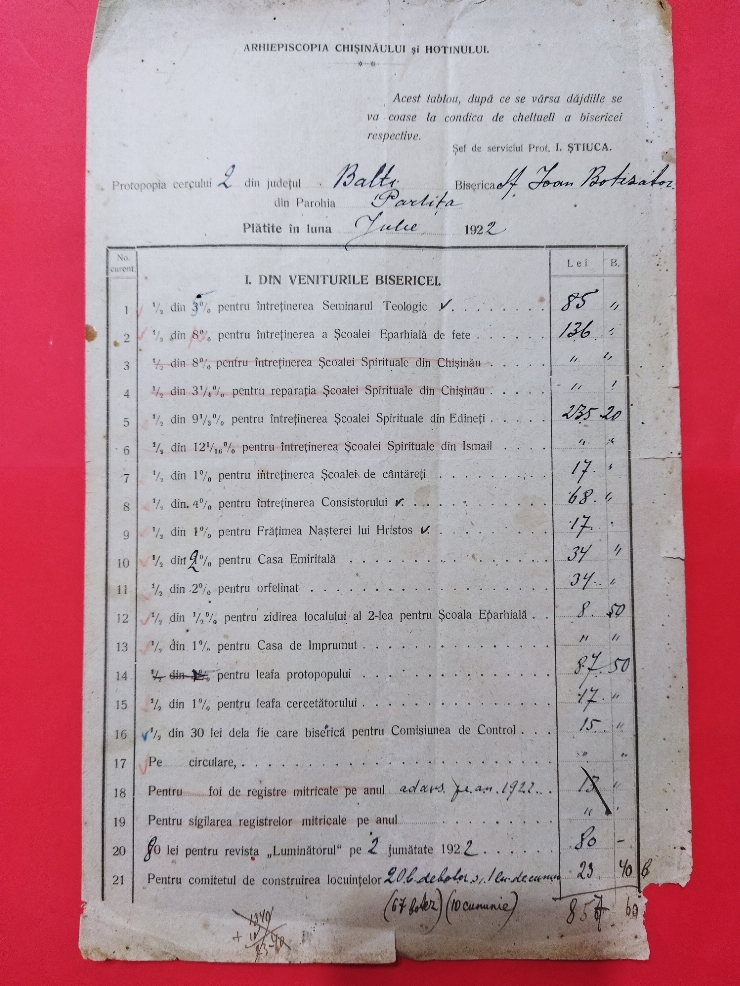 ARHIEPISCOPIA CHIȘINĂULUI și HOTINULUI.
Acest tablou, după ce se vărsa dăjdiile se
va coase la condica de cheltueli a bisericei
respective.
Șef de serviciul Prot. I. ȘTIUCA.
Protopopia cercului 2 din județul Balți Biserica Sf. Ioan Botezător
din Parohia Parlița
Plătite în luna Julie 1922
No. curent. I. DIN VENITURILE BISERICEI. Lei B.
1 ½ din 3% pentru întreținerea Seminarul Teologic v. 85 „
2 ½ din 8% pentru întreținerea a Școalei Eparhială de fete 136 „
3 ½ din 8% pentru întreținerea Școalei Spirituale din Chișinău „ „
4 ½ din 3¼% pentru reparația Școalei Spirituale din Chișinău „ „
5 ½ din 9⅓% pentru întreținerea Școalei Spirituale din Edineți 235 20
6 ½ din 12¹/₁₆% pentru întreținerea Școalei Spirituale din Ismail „ „
7 ½ din 1% pentru întreținerea Școalei de cântăreți 17 „
8 ½ din 4% pentru întreținerea Consistorului v. 68 „
9 ½ din 1% pentru Frățimea Nașterei lui Hristos v. 17 „
10 ½ din 2% pentru Casa Emiritală 34 „
11 ½ din 2% pentru orfelinat 34 „
12 ½ din ½% pentru zidirea localului al 2-lea pentru Școala Eparhială 8 50
13 ½ din 1% pentru Casa de Imprumut „ „
14 ½ din 1% pentru leafa protopopului 87 50
15 ½ din 1% pentru leafa cercetătorului 17 „
16 ½ din 30 lei dela fie care biserică pentru Comisiunea de Control 15 „
17 Pe circulare, „ „
18 Pentru foi de registre mitricale pe anul 1922 13 „
19 Pentru sigilarea registrelor mitricale pe anul „ „
20 80 lei pentru revista „Luminătorul" pe 2 jumătate 1922 80 –
21 Pentru comitetul de construirea locuințelor 20 b. de botez 23 40 B
(67 botez) (10 cununie) 857 60